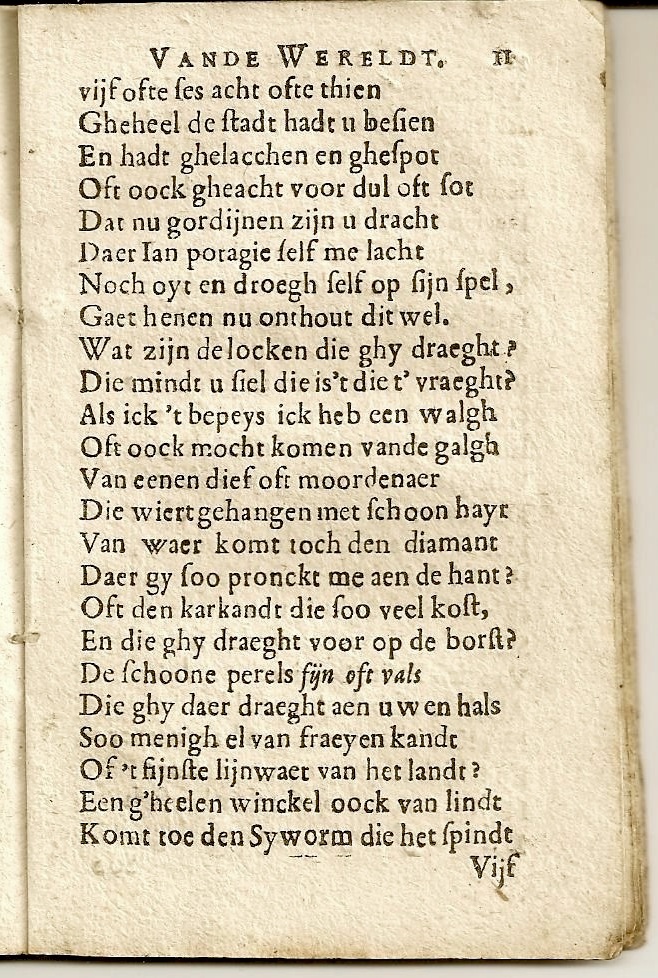 VANDE WERELDT. 11
vijf ofte ſes acht ofte thien
Gheheel de ſtadt hadt u beſien
En hadt ghelacchen en gheſpot
Oft oock gheacht voor dul oft ſot
Dat nu gordijnen zijn u dracht
Daer Ian potagie ſelf me lacht
Noch oyt en droegh ſelf op ſijn ſpel,
Gaet henen nu onthout dit wel.
Wat zijn de locken die ghy draeght?
Die mindt u ſiel die is't die t' vraeght?
Als ick 't bepeys ick heb een walgh
Oft oock mocht komen vande galgh
Van eenen dief oft moordenaer
Die wiert gehangen met ſchoon hayr
Van waer komt toch den diamant
Daer gy ſoo pronckt me aen de hant?
Oft den karkandt die ſoo veel koſt,
En die ghy draeght voor op de borſt?
De ſchoone perels fijn oft vals
Die ghy daer draeght aen uwen hals
Soo menigh el van fraeyen kandt
Of 't fijnſte lijnwaet van het landt?
Een g'heelen winckel oock van lindt
Komt toe den Syworm die het ſpindt
Vijf